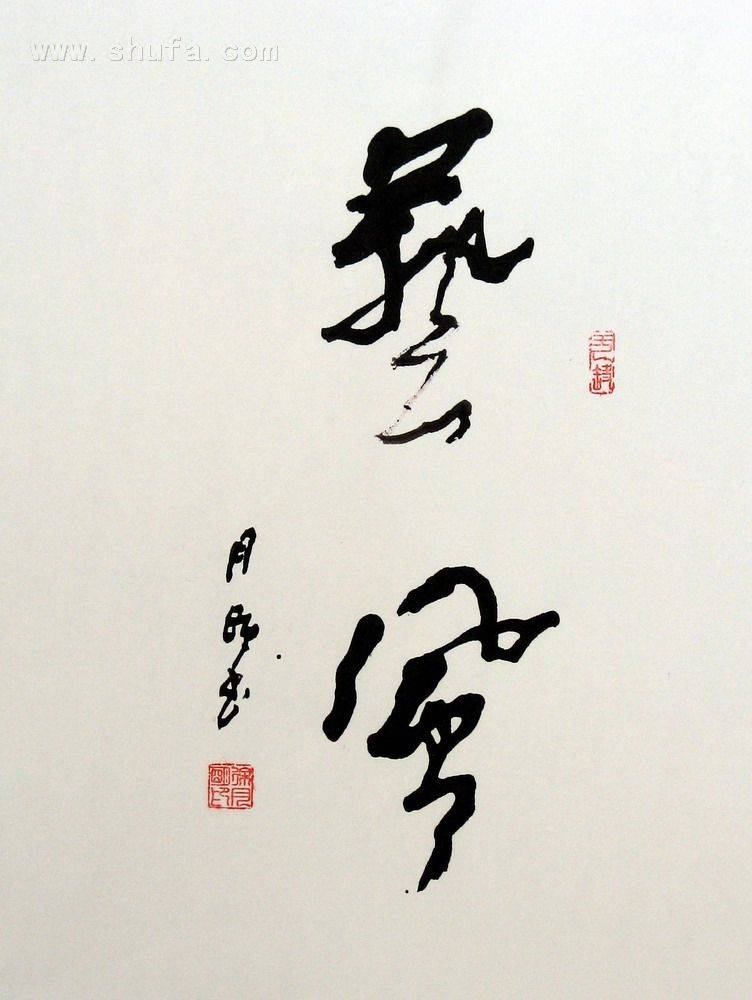 www.shufa.com
藝風
月明书